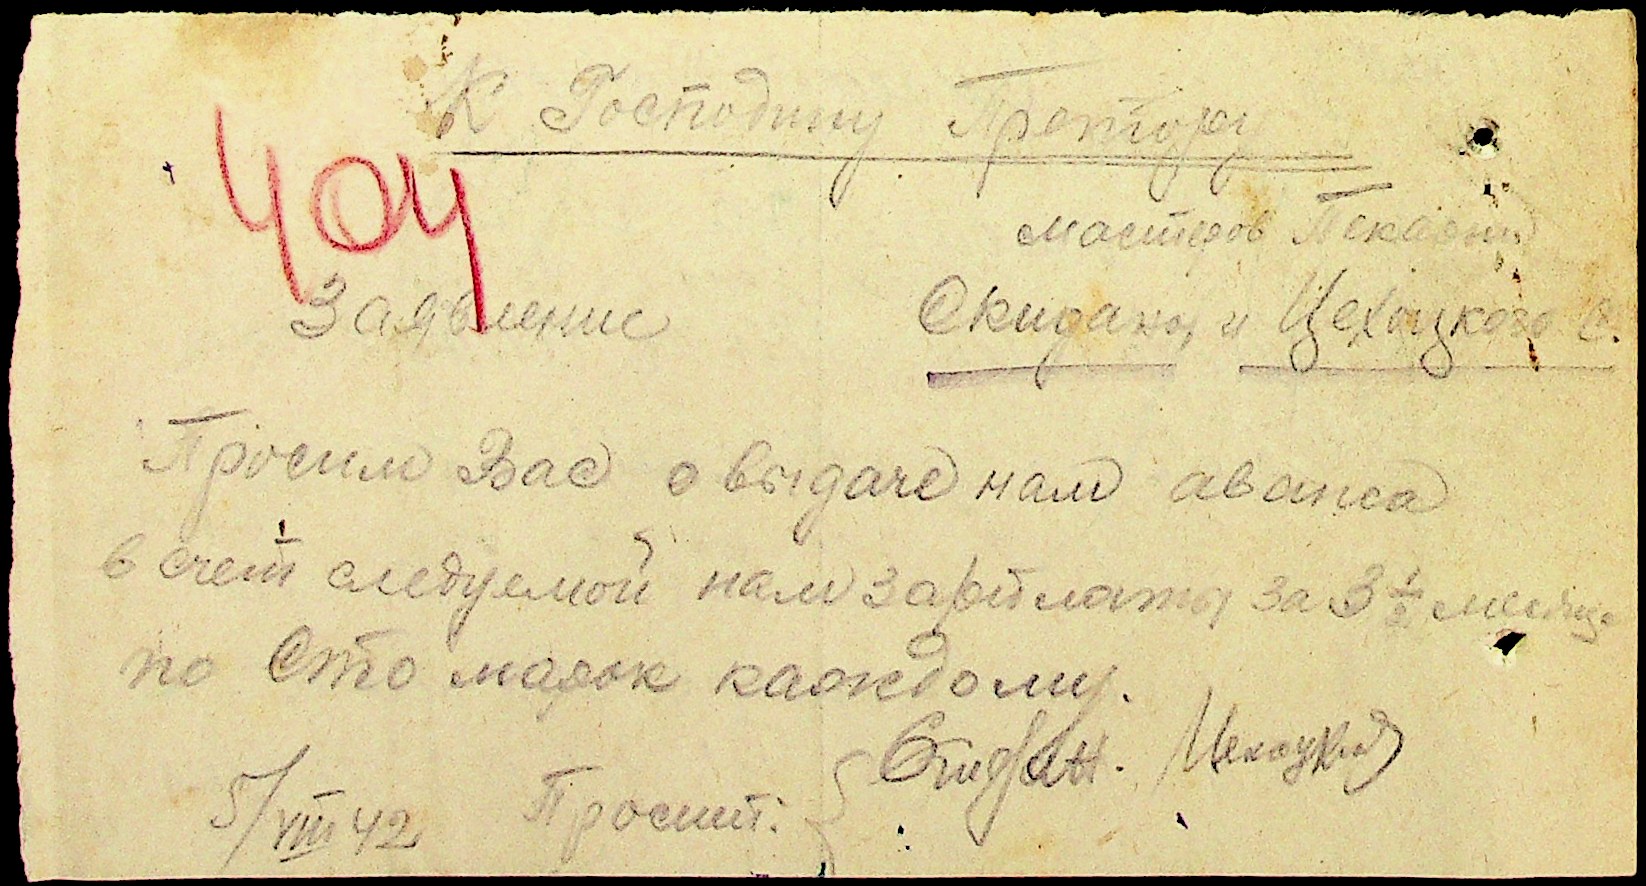 К Господину Претору
404
мастеров Пекарни
Заявление
Скидана, и Цехоцкого С.
Просим Вас о выдаче нам аванса
в счет следуемой нам зарплаты за 3 1/2 месяца
по Сто марок каждому.
5/VIII 42 Просит: Скидан. Цехоцкий